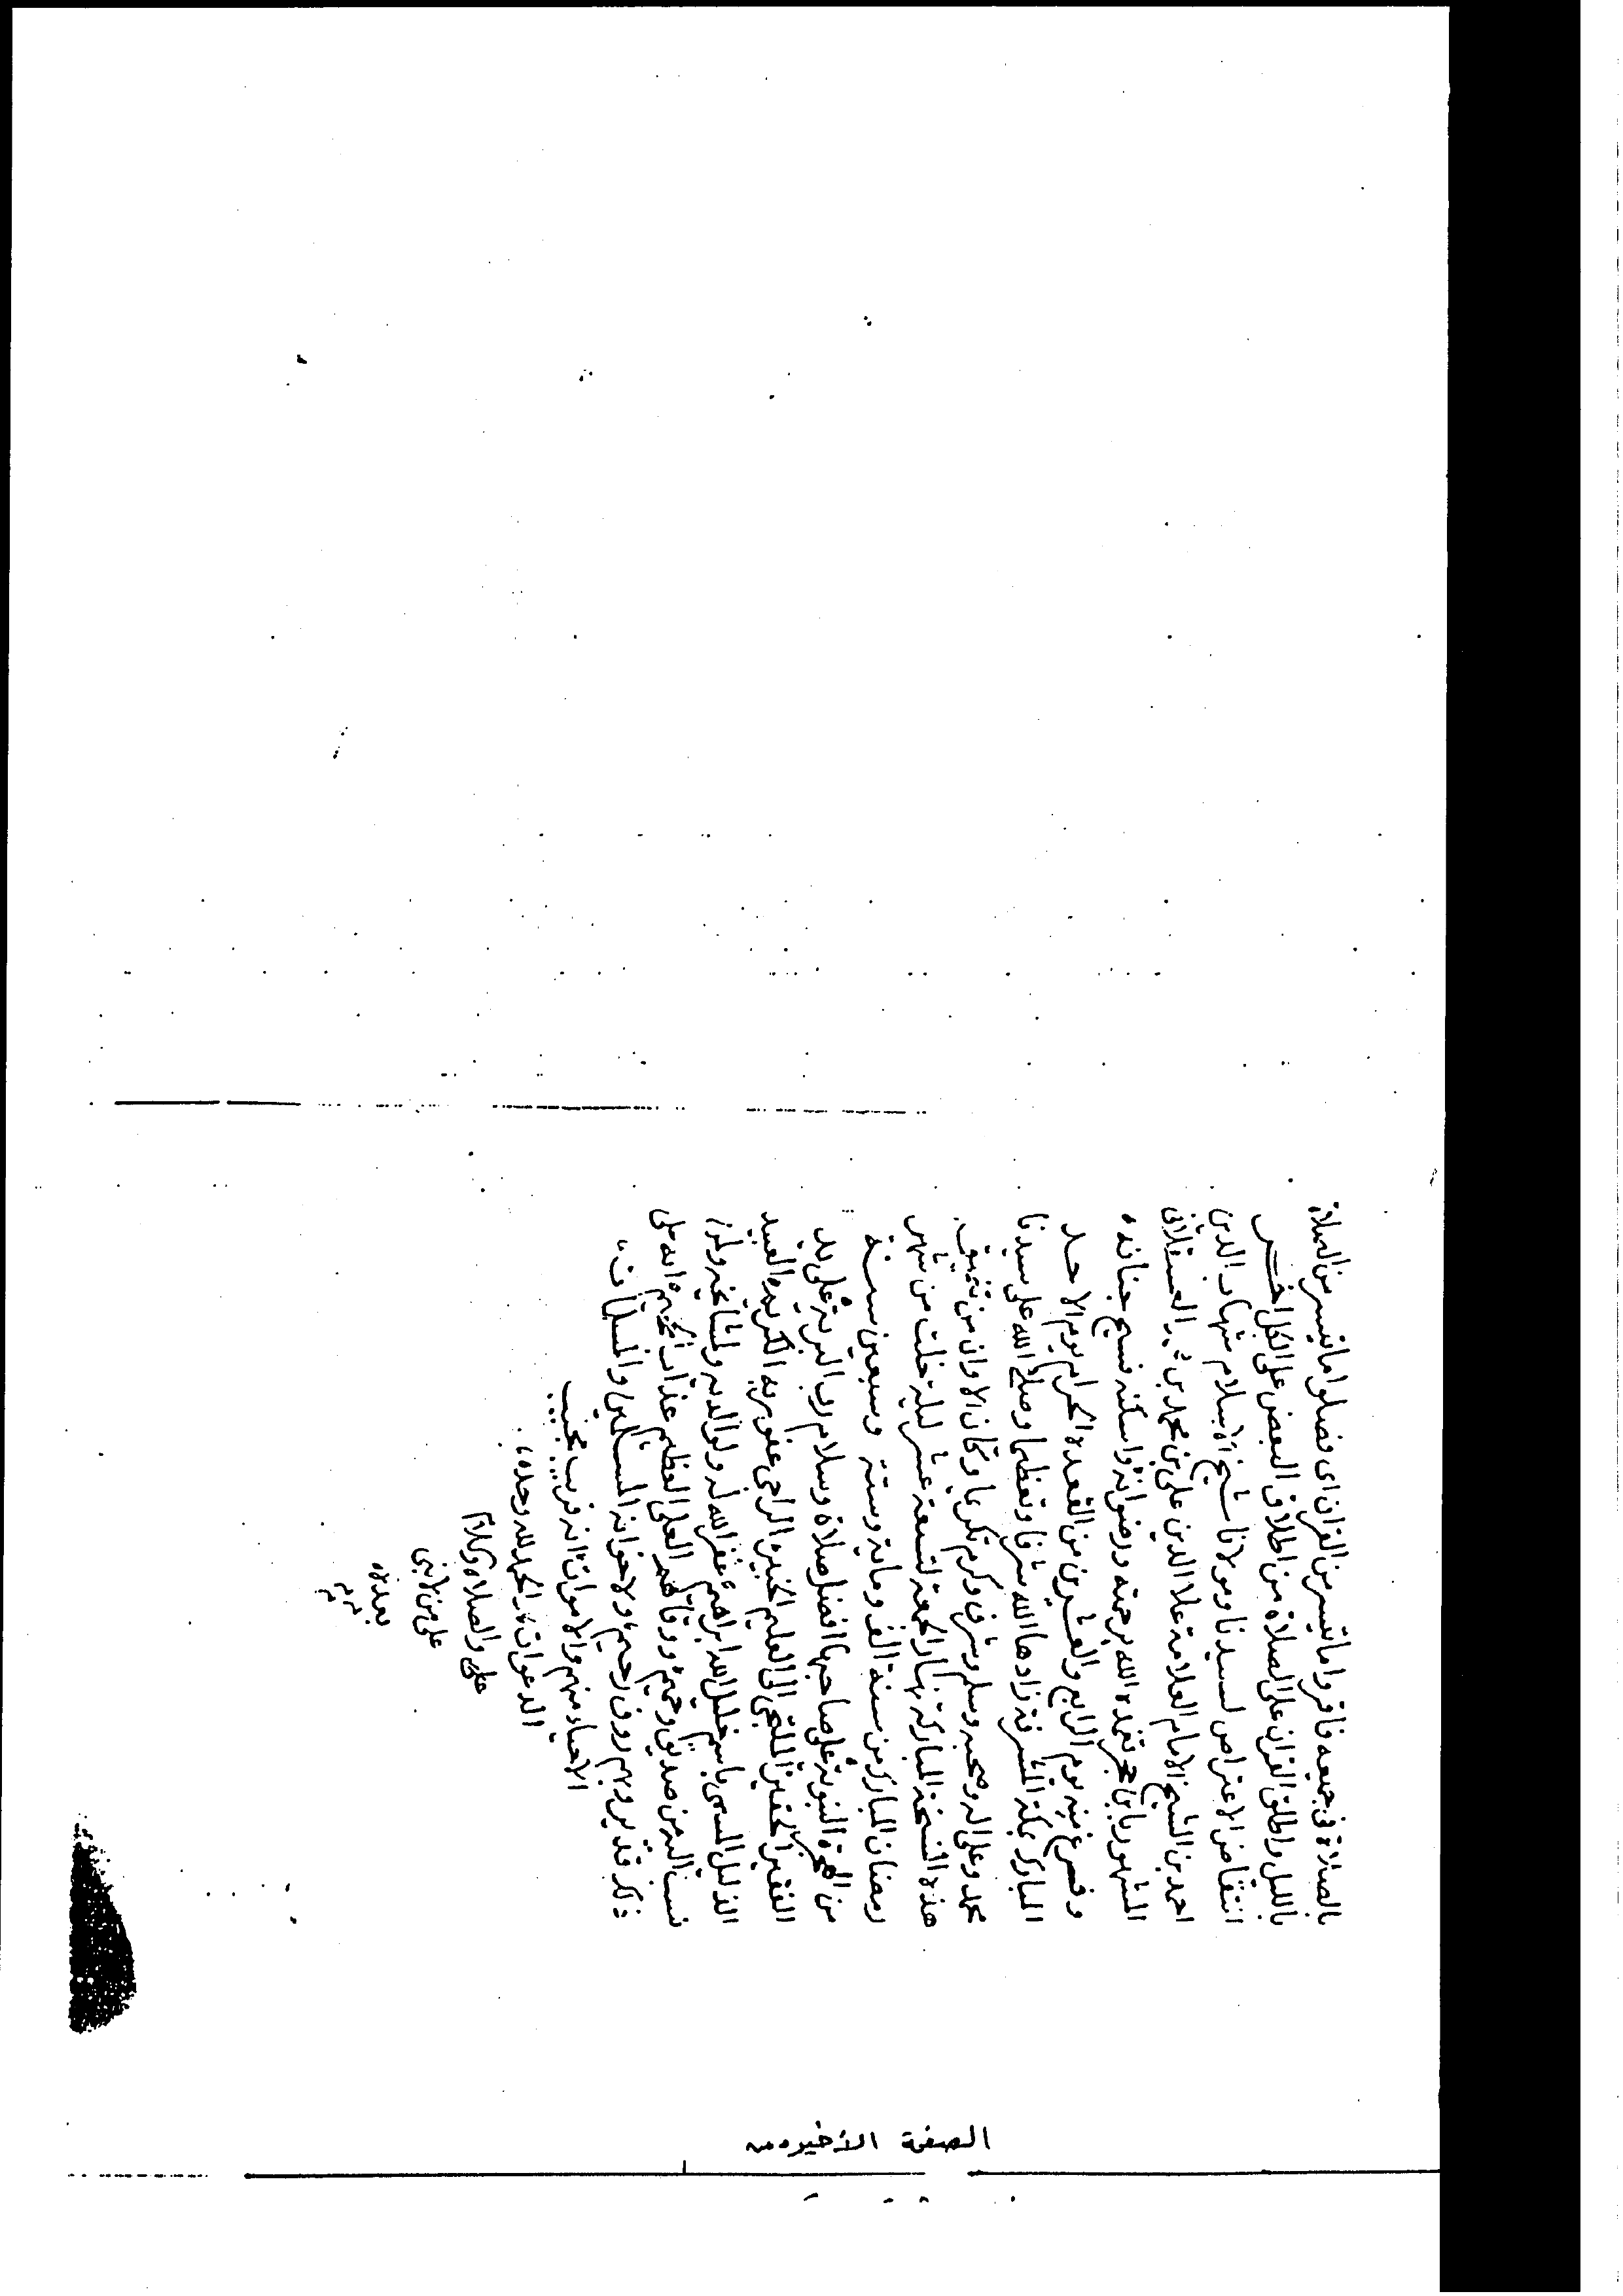 بالصلاة في جميعه فاقروا ما تيسر من القران اي فصلوا ما تيسر من الصلاة
بالليل واطلق القران على الصلاة من اطلاق البعض على الكل اخر
انتقاض الاعتراض لسيدنا ومولانا شيخ الاسلام شهاب الدين
احمد بن الشيخ الامام العلامة علا الدين علي بن محمد بن العسقلاني
الشهير بابن حجر تغمده الله برحمته ورضوانه واسكنه فسيح جنانه
وفرغ منه يوم الرابع والعشرين من القعدة الحرام يوم الاحد
المبارك بمكة المشرفة زادها الله شرفا وتعظيما وصلى الله على سيدنا
محمد وعلى اله وصحبه وسلم وشرف وكرم تكريما وكان الاوان من تنميق
هذه النسخة المباركة نهار الجمعة لتسعة عشر ليلة خلت من شهر
رمضان المبارك من سنة الف وماية وستة وسبعين سنة
من الهجرة النبوية على صاحبها افضل صلاة وسلام رب البرية على يد
الفقير الحقير الملتجي الى العليم الخبير الراجي عفو ربه الكريم العبيد
الذليل المسمى باسم خليل الله ابراهيم غفر الله له ولوالديه ولمشايخه ولمن
نسب اليه من صديق وحميم ووقاهم العلي العظيم عذاب الجحيم انه على
ذلك قدير وبهم روف رحيم ولاخوانه المسلمين والمسلمات
الاحياء منهم والاموات انه قريب مجيب
الدعوات والحمد لله وحده
والصلاة والسلام
على من لا نبي
بعده
الصفحة الأخيرة من